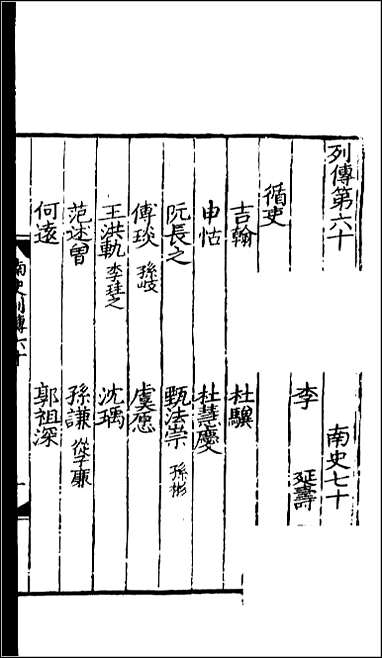 列傳第六十　南史七十
李　延壽
循吏
吉翰　杜驥
申恬　杜慧慶
阮長之　甄法崇　孫彬
傅琰　孫岐　虞愿
王洪軌　李珪之　沈瑀
范述曾　孫謙　從子廉
何遠　郭祖深
南史列傳六十